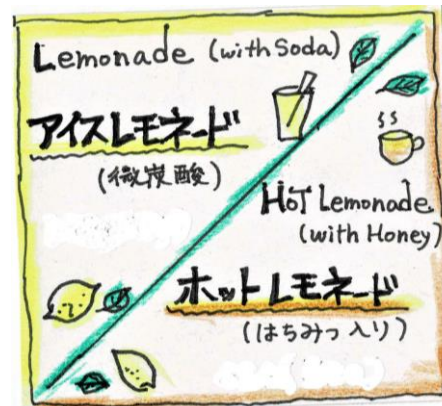 Lemonade (with Soda)
アイスレモネード
(微炭酸)
HOT Lemonade
(with Honey)
ホットレモネード
(はちみつ入り)